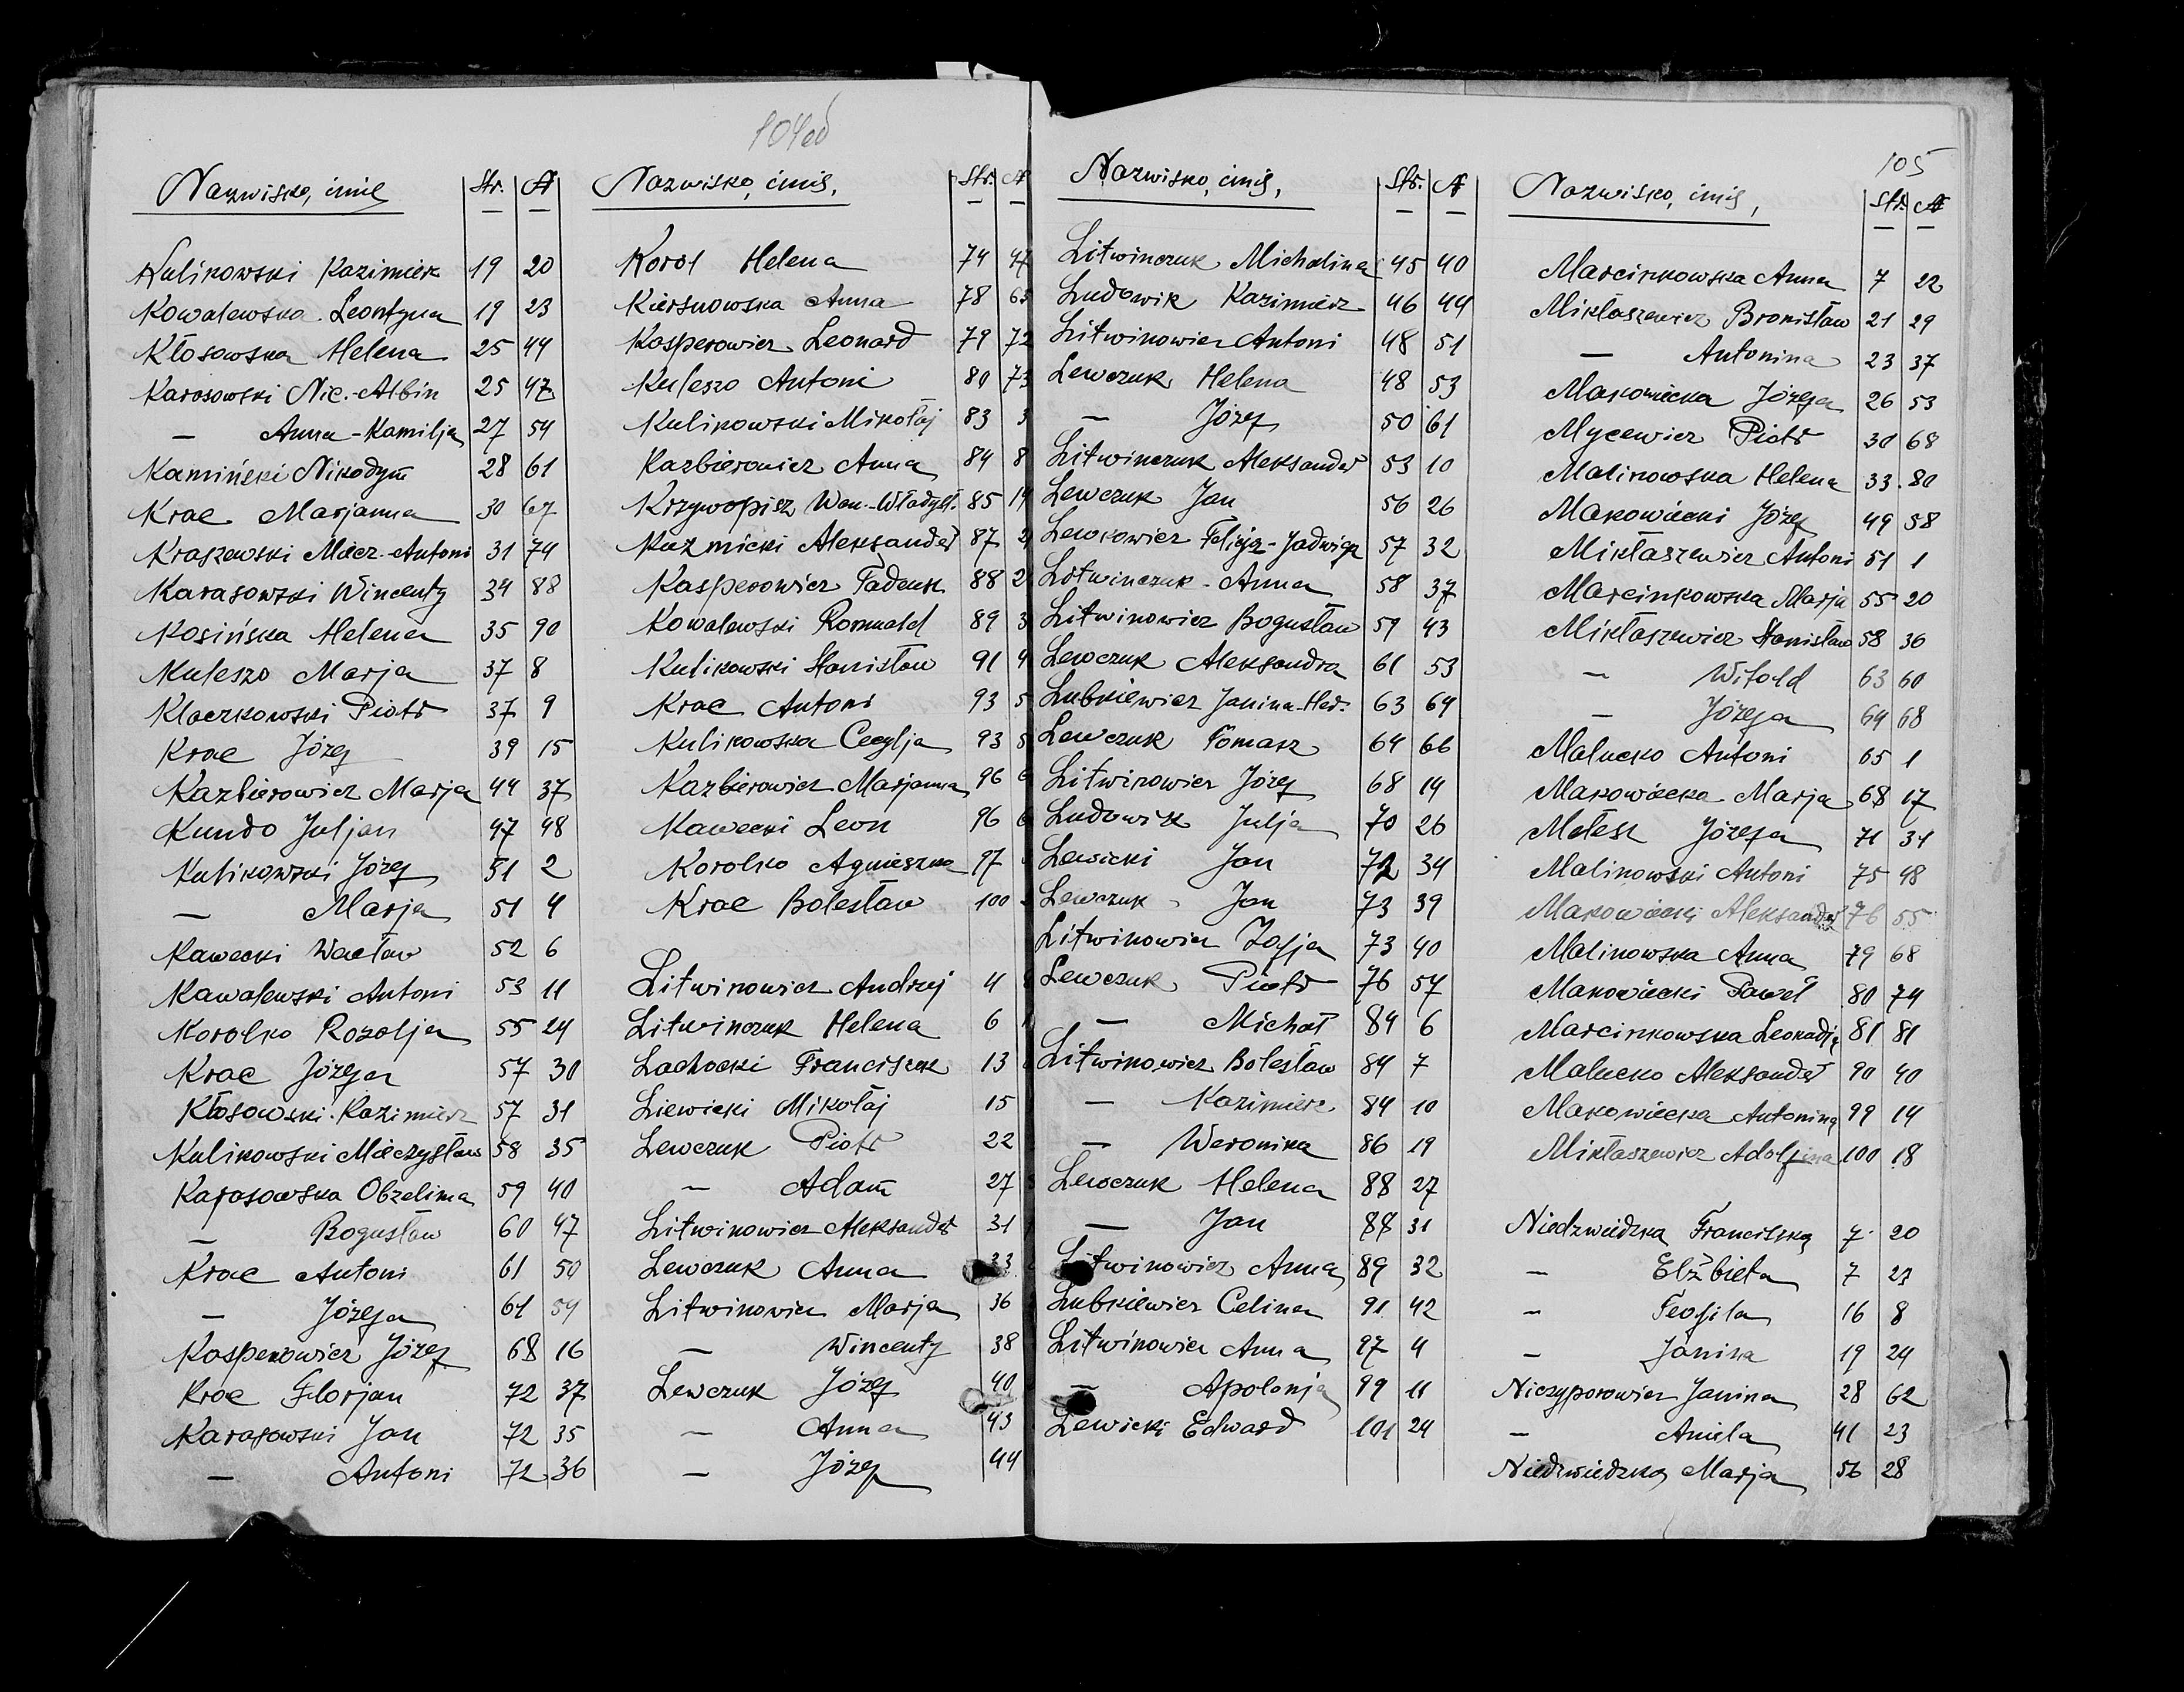 104
Nazwisko, imię Str. №
Kulikowski Kazimierz 19 20
Kowalewska Leontyna 19 23
Kłosowska Helena 25 44
Karosowski Nic.-Albin 25 47
— Anna-Kamilja 27 54
Kamiński Nikodym 28 61
Krac Marjanna 30 67
Kraszewski Miecz.-Antoni 31 74
Karasowski Wincenty 34 88
Kosińska Helena 35 90
Kuleszo Marja 37 8
Klaczkowski Piotr 37 9
Krac Józef 39 15
Kazbierowicz Marja 44 37
Kundo Juljan 47 48
Kulikowski Józef 51 2
— Marja 51 4
Kawecki Wacław 52 6
Kawalewski Antoni 53 11
Korolko Rozolja 55 24
Krac Józefa 57 30
Kłosowski Kazimierz 57 31
Kulikowski Mieczysław 58 35
Karasowska Obzelima 59 40
— Bogusław 60 47
Krac Antoni 61 50
— Józefa 61 54
Kasperowicz Józef 68 16
Krac Florjan 72 37
Karasowski Jan 72 35
— Antoni 72 36
Nazwisko, imię, Str. №
Korol Helena 74 47
Kiersnowska Anna 78
Kasperowicz Leonard 79 72
Kuleszo Antoni 80 73
Kulikowski Mikołaj 83
Kazbierowicz Anna 84 8
Krzywopisz Wan.-Władysł. 85
Kuźmicki Aleksander 87
Kasperowicz Tadeusz 88
Kowalewski Romuald 89
Kulikowski Stanisław 91
Krac Antoni 93
Kulikowska Cecylja 93
Kazbierowicz Marjanna 96
Kawecki Leon 96
Korolko Agnieszka 97
Krac Bolesław 100
Litwinowicz Andrzej 4
Litwinczuk Helena 6
Lachocki Franciszek 13
Liewicki Mikołaj 15
Lewczuk Piotr 22
— Adam 27
Litwinowicz Aleksander 31
Lewczuk Anna 33
Litwinowicz Marja 36
— Wincenty 38
Lewczuk Józef 40
— Anna 43
— Józef 44
Nazwisko, imię, Str. №
Litwinczuk Michalina 45 40
Ludowik Kazimierz 46 44
Litwinowicz Antoni 48 51
Lewczuk Helena 48 53
— Józef 50 61
Litwinczuk Aleksander 53 10
Lewczuk Jan 56 26
Lewkowicz Felicja-Jadwiga 57 32
Litwinczuk-Anna 58 37
Litwinowicz Bogusław 59 43
Lewczuk Aleksandra 61 53
Lubkiewicz Janina-Hel. 63 64
Lewczuk Tomasz 64 66
Litwinowicz Józef 68 14
Ludowik Julja 70 26
Lewicki Jan 72 34
Lewczuk Jan 73 39
Litwinowicz Zofja 73 40
Lewczuk Piotr 76 57
— Michał 84 6
Litwinowicz Bolesław 84 7
— Kazimierz 84 10
— Weronika 86 19
Lewczuk Helena 88 27
— Jan 88 31
Litwinowicz Anna 89 32
Lubkiewicz Celina 91 42
Litwinowicz Anna 97 4
— Apolonja 99 11
Lewicki Edward 101 24
105
Nazwisko, imię, Str. №
Marcinkowska Anna 7 22
Mikłaszewicz Bronisław 21 29
— Antonina 23 37
Makowiecka Józefa 26 53
Mycewicz Piotr 30 68
Malinowska Helena 33 80
Makowiecki Józef 49 58
Mikłaszewicz Antoni 51 1
Marcinkowska Marja 55 20
Mikłaszewicz Stanisław 58 36
— Witold 63 60
— Józefa 64 68
Malucko Antoni 65 1
Makowiecka Marja 68 17
Melesz Józefa 71 31
Malinowski Antoni 75 48
Makowiecki Aleksander 76 55
Malinowska Anna 79 68
Makowiecki Paweł 80 74
Marcinkowska Leokadja 81 81
Malucko Aleksander 90 40
Makowiecka Antonina 99 14
Mikłaszewicz Adolfina 100 18
Niedzwiedzka Franciszka 7 20
— Elżbieta 7 21
— Teofila 16 8
— Janina 19 24
Niczyporowicz Janina 28 62
— Aniela 41 23
Niedzwiedzka Marja 56 28